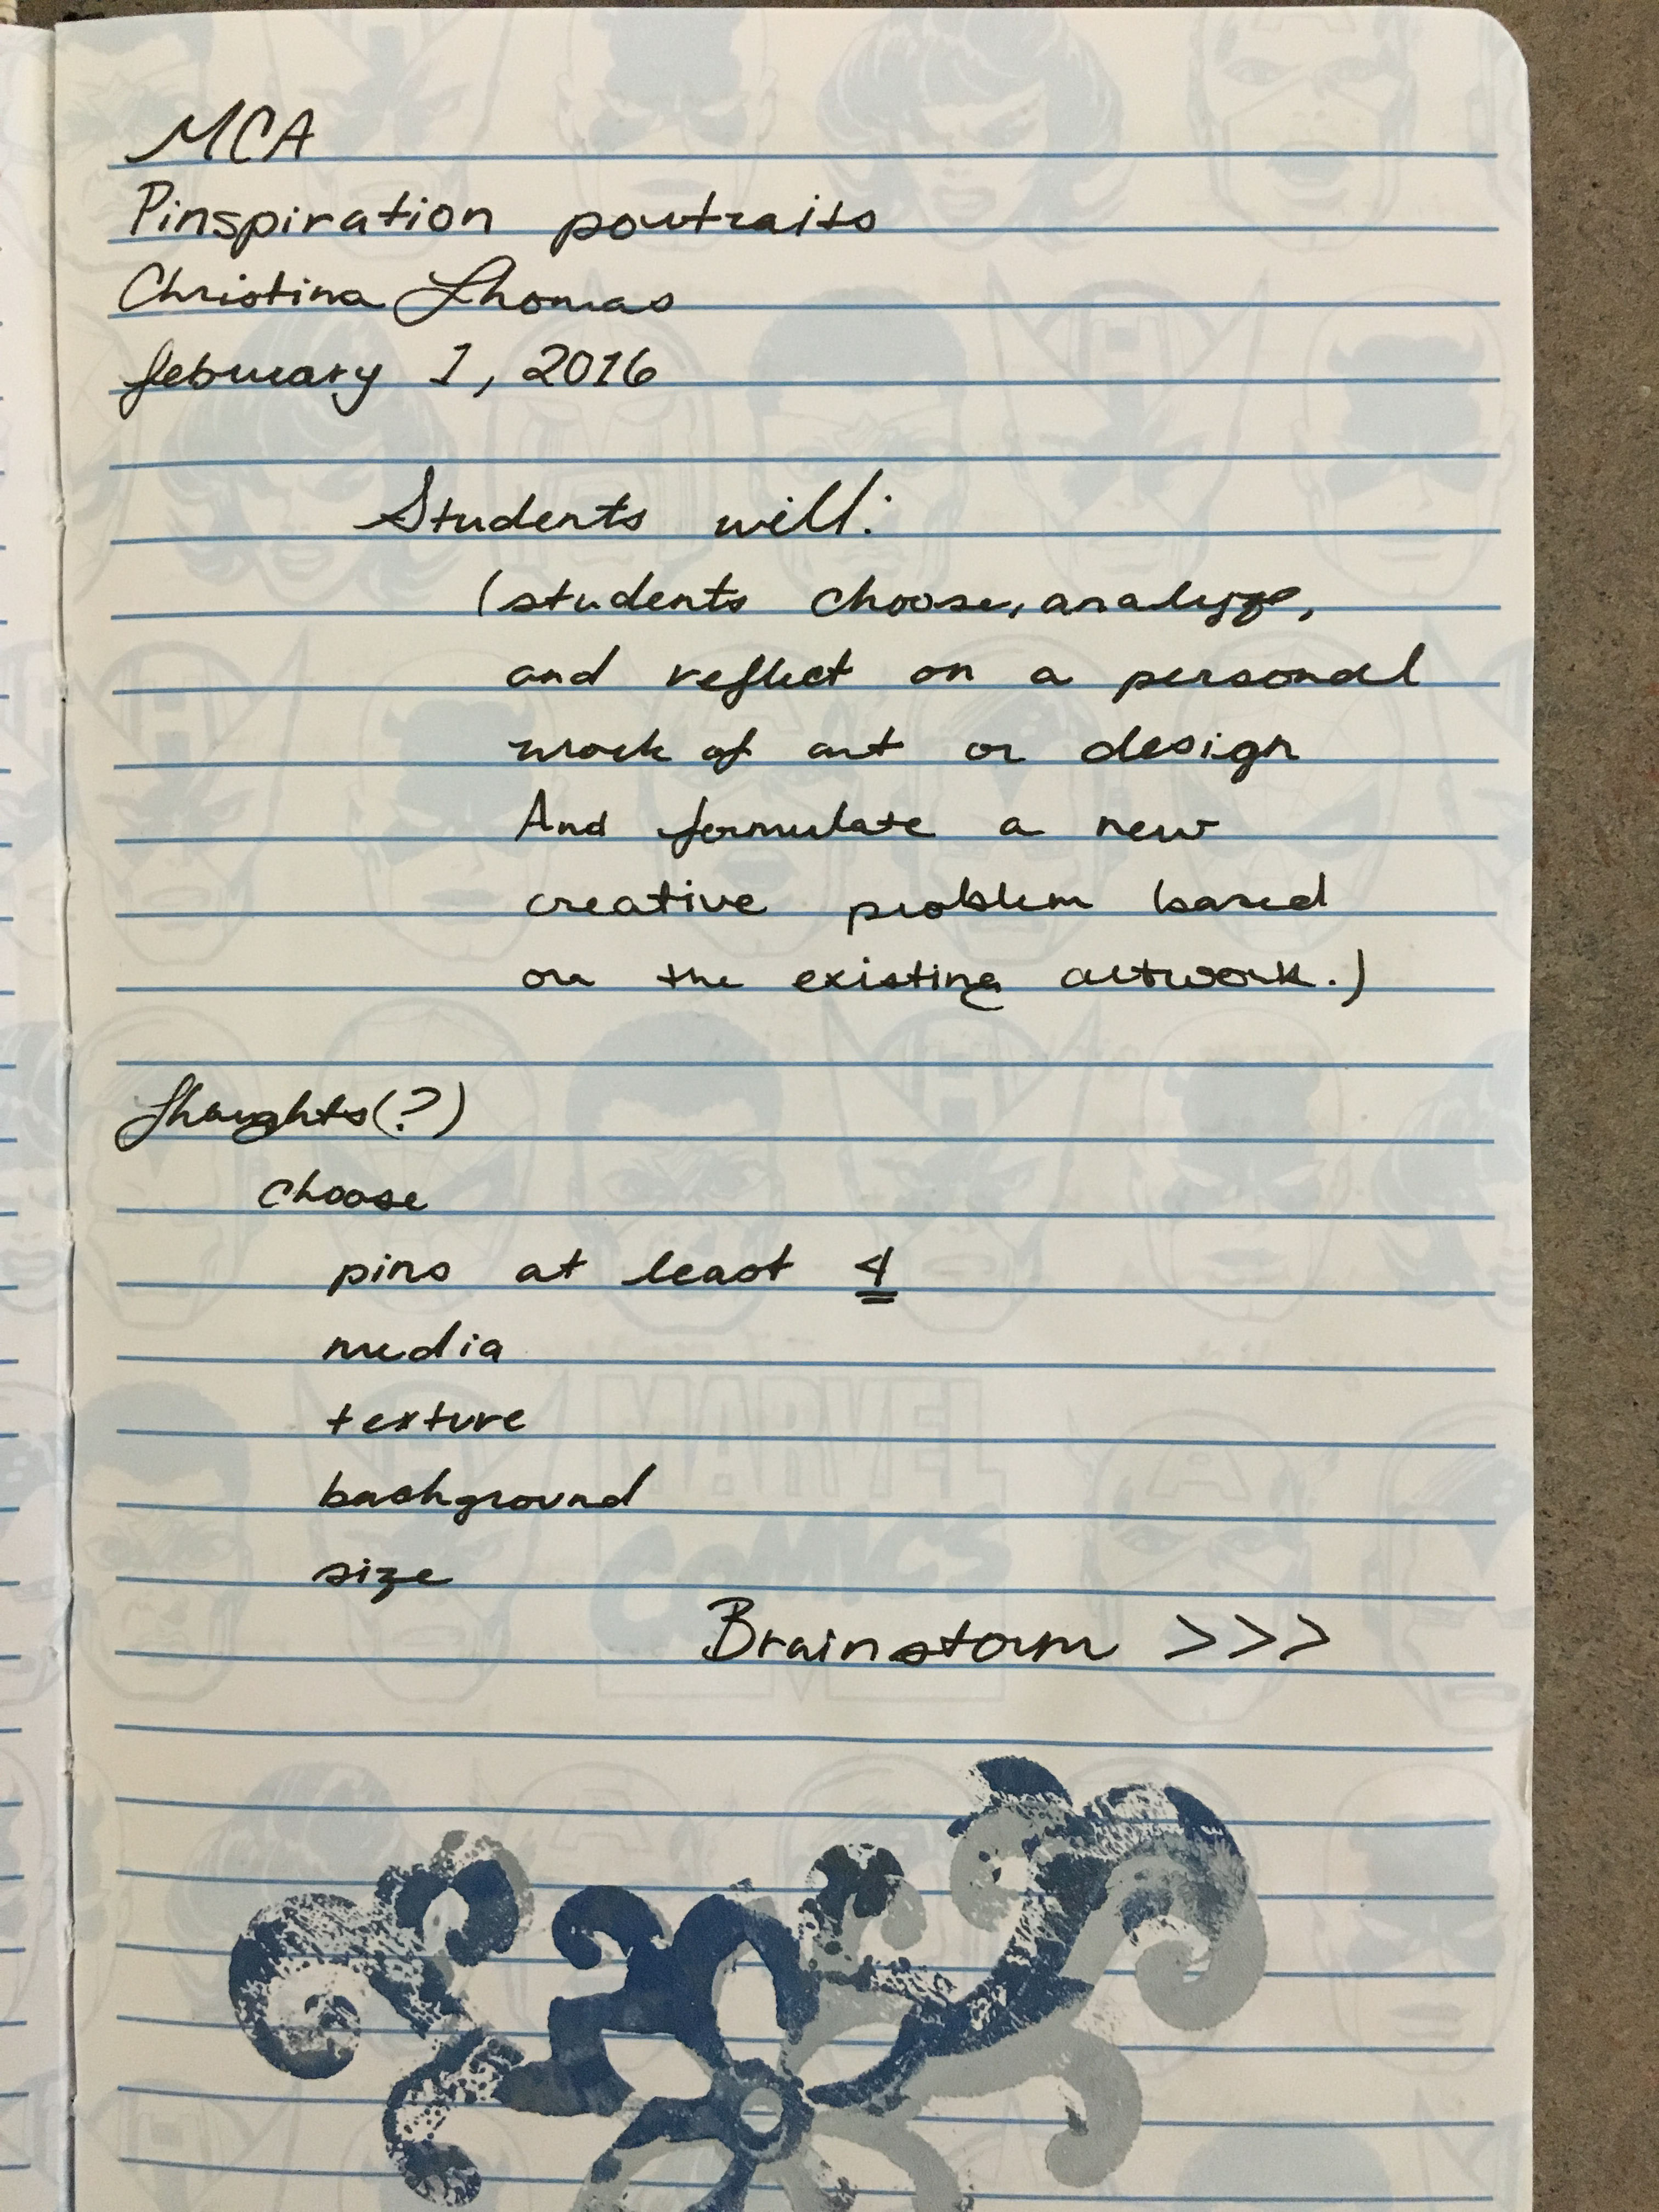 MCA
Pinspiration portraits
Christina Thomas
february 1, 2016
Students will:
(students choose, analyze,
and reflect on a personal
work of art or design
And formulate a new
creative problem based
on the existing artwork.)
Thoughts(?)
choose
pins at least 4
media
texture
background
size
MARVEL
COMICS
Brainstorm >>>